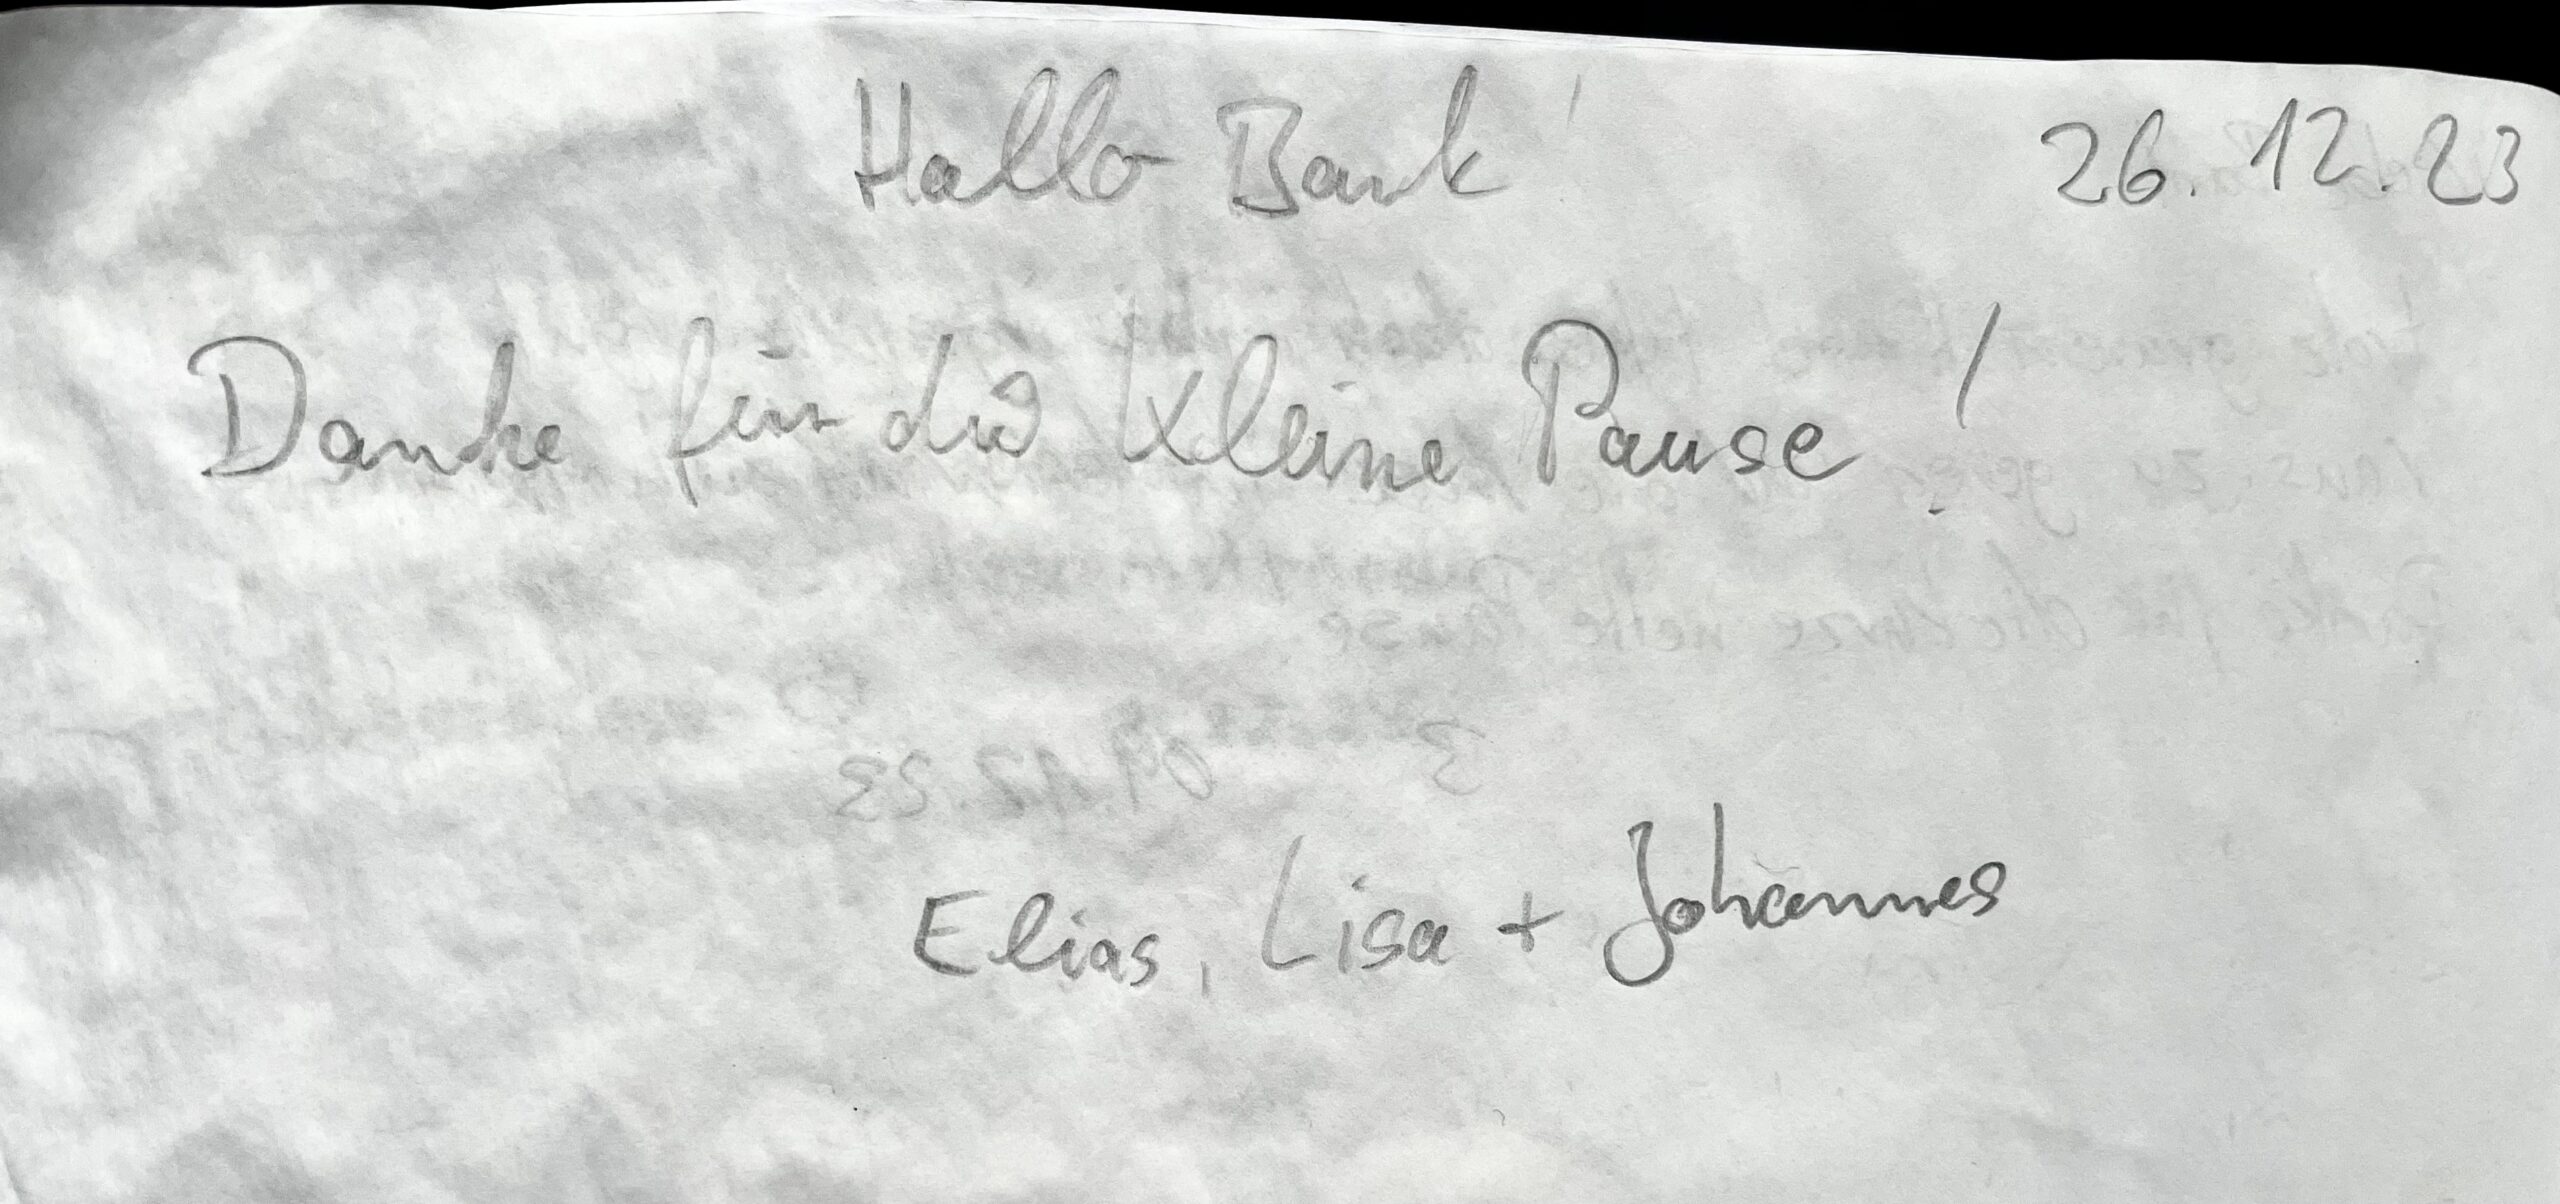 Hallo Bank! 26.12.23
Danke für die kleine Pause!
Elias, Lisa + Johannes